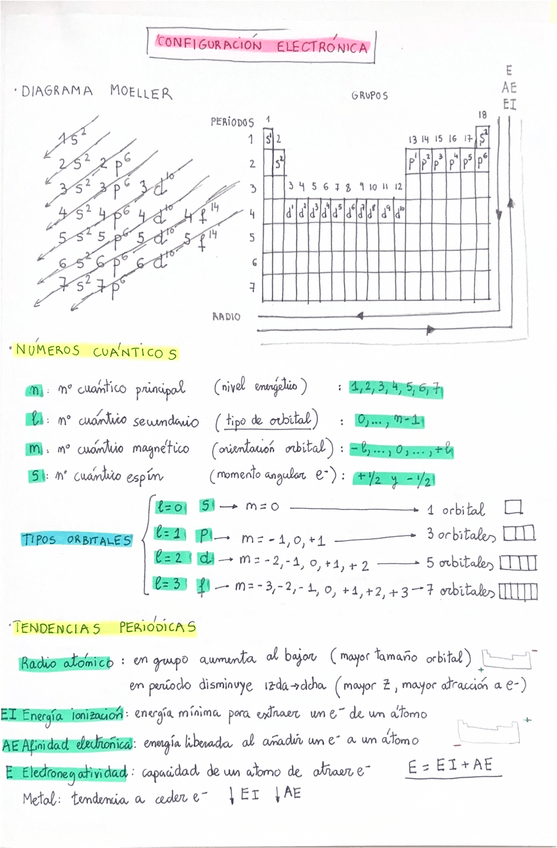 CONFIGURACIÓN ELECTRÓNICA
E
AE
EI
· DIAGRAMA MOELLER
GRUPOS
PERÍODOS 1 18
1s²
2s² 2p⁶
3s² 3p⁶ 3d¹⁰
4s² 4p⁶ 4d¹⁰ 4f¹⁴
5s² 5p⁶ 5d¹⁰ 5f¹⁴
6s² 6p⁶ 6d¹⁰
7s² 7p⁶
1 s¹ 2 13 14 15 16 17 s²
2 s² p¹ p² p³ p⁴ p⁵ p⁶
3 3 4 5 6 7 8 9 10 11 12
4 d¹ d² d³ d⁴ d⁵ d⁶ d⁷ d⁸ d⁹ d¹⁰
5
6
7
RADIO
· NÚMEROS CUÁNTICOS
n: nº cuántico principal (nivel energético) : 1,2,3,4,5,6,7
l: nº cuántico secundario (tipo de orbital) : 0,..., n-1
m: nº cuántico magnético (orientación orbital) : -l,...,0,...,+l
s: nº cuántico espín (momento angular e-) : +1/2 y -1/2
TIPOS ORBITALES
l=0 s → m=0 → 1 orbital
l=1 p → m=-1,0,+1 → 3 orbitales
l=2 d → m=-2,-1,0,+1,+2 → 5 orbitales
l=3 f → m=-3,-2,-1,0,+1,+2,+3 → 7 orbitales
· TENDENCIAS PERIÓDICAS
Radio atómico: en grupo aumenta al bajar (mayor tamaño orbital) - +
en período disminuye izda→dcha (mayor Z, mayor atracción a e-)
EI Energía ionización: energía mínima para extraer un e⁻ de un átomo +
AE Afinidad electrónica: energía liberada al añadir un e⁻ a un átomo -
E Electronegatividad: capacidad de un atomo de atraer e⁻ E = EI + AE
Metal: tendencia a ceder e⁻ ↓EI ↓AE